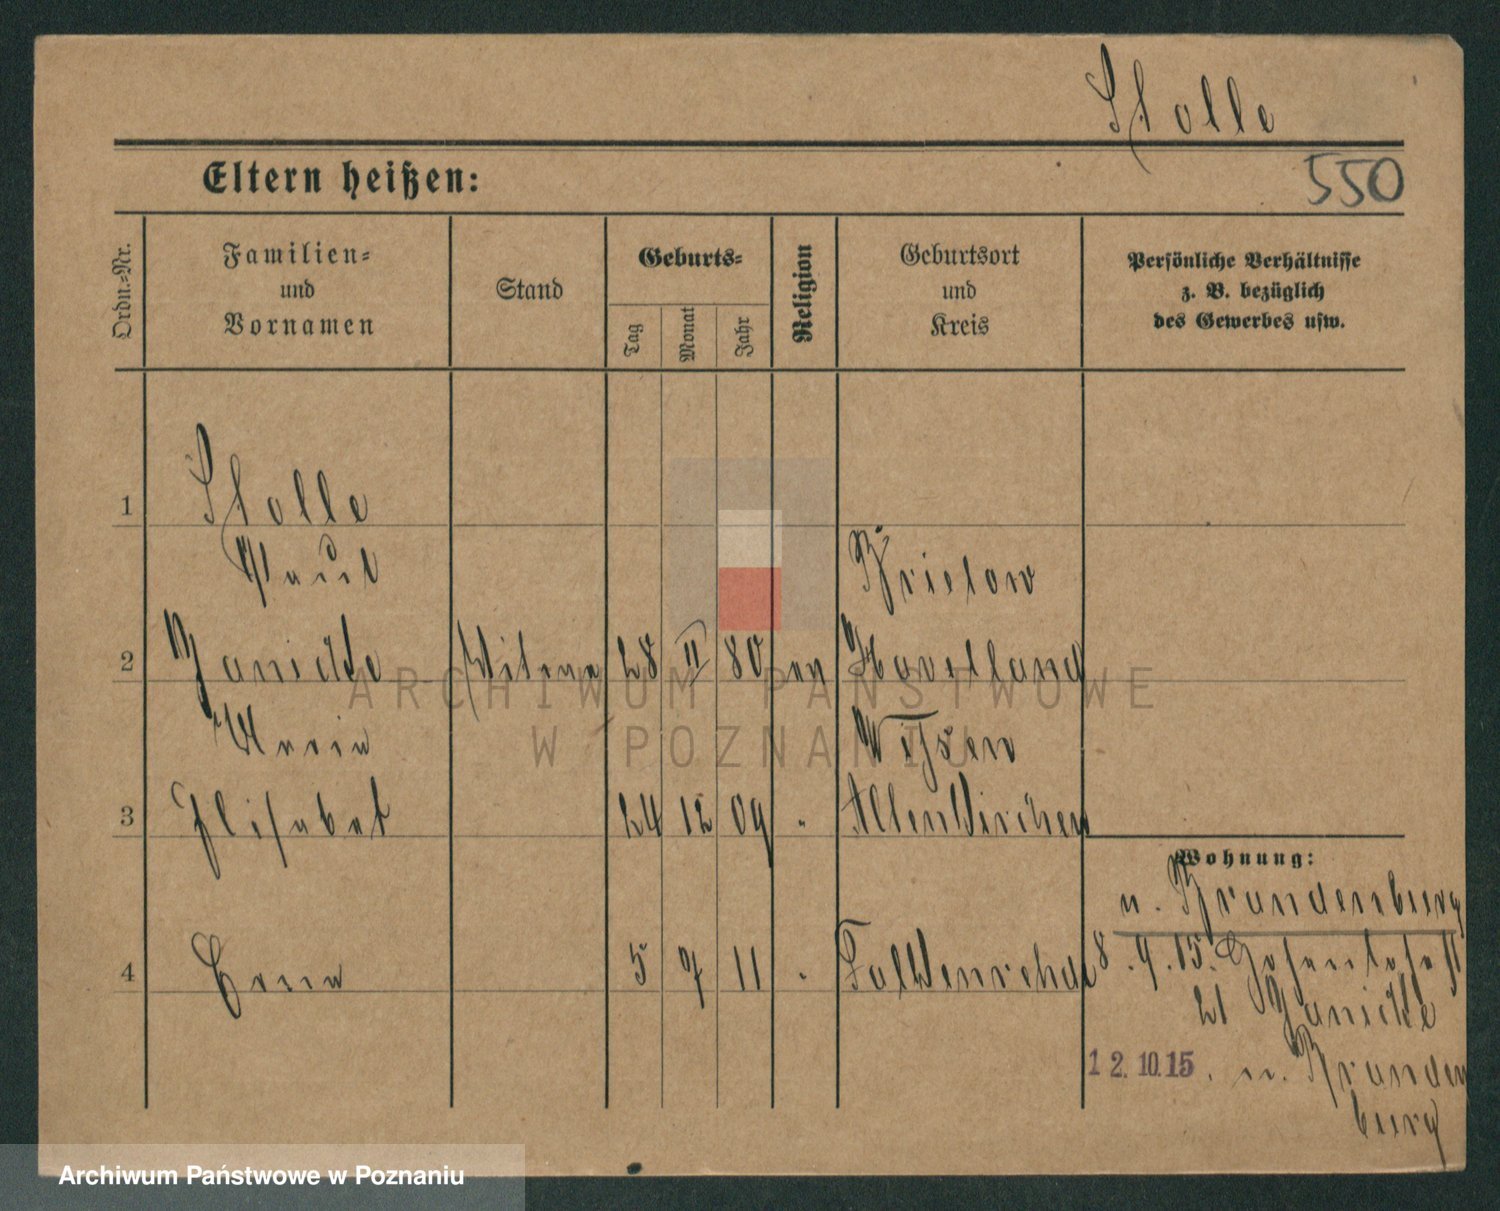 Stolle
550
Eltern heißen:
Ordn.-Nr.
Familien-
und
Vornamen
Stand
Geburts-
Tag
Monat
Jahr
Religion
Geburtsort
und
Kreis
Persönliche Verhältnisse
z. B. bezüglich
des Gewerbes usw.
1 Stolle
Paul Brielow
2 Janicke Witwe 28 II 80 ev Havelland
Maria
3 Elisabet 24 12 09 " Altenkirchen
Wohnung:
n. Brandenburg
4 Erna 5 7 11 " Falkenrehde
8.9.15.
21 Janicke
12.10.15. n. Branden
burg
ARCHIWUM PAŃSTWOWE
W POZNANIU
Archiwum Państwowe w Poznaniu